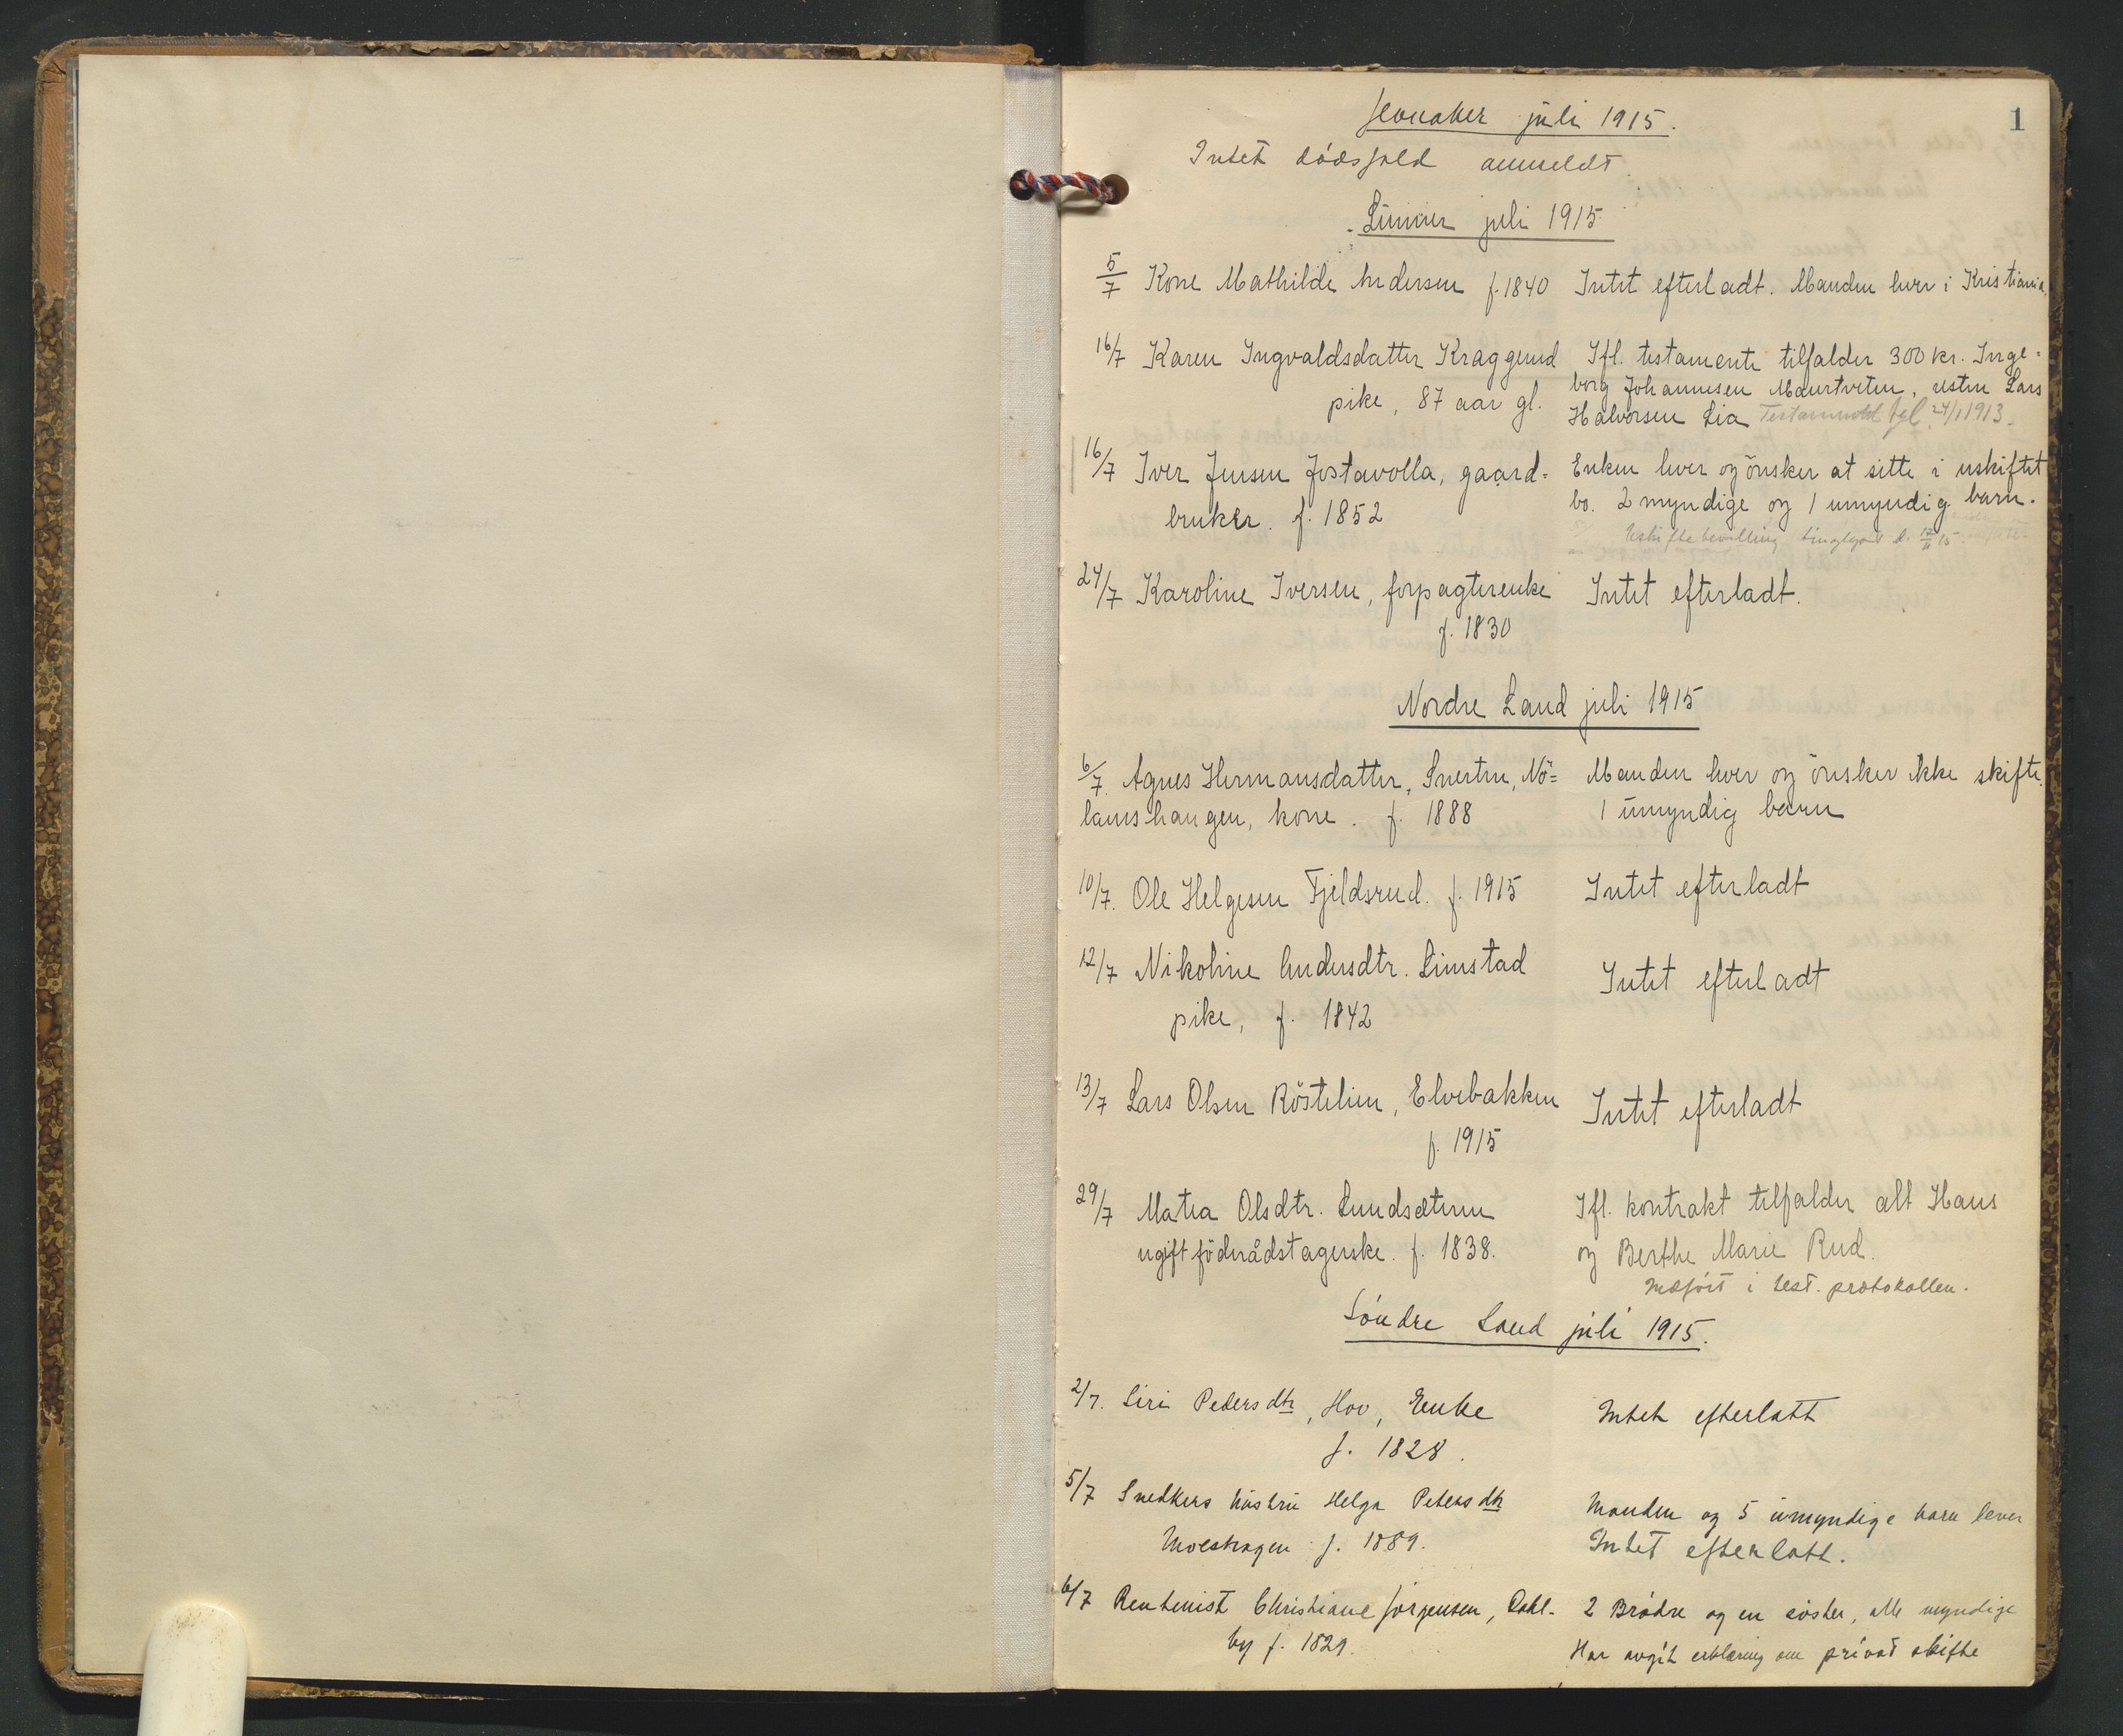 1
Jevnaker juli 1915.
Intet dödsfald anmeldt.
Lunner juli 1915
5/7 Kone Mathilde Andersen f. 1840 Intet efterladt. Manden lever i Kristiania.
16/7 Karen Ingvaldsdatter Kraggerud Ifl. testamente tilfalder 300 kr. Inge=
pike, 87 aar gl. borg Johannesen Maurtveten, resten Lars
Halvorsen Lia Testamentet tgl. 24/1 1913.
16/7 Iver Jensen Jostavolla, gaard= Enken lever og önsker at sitte i uskiftet
bruker. f. 1852 bo. 2 myndige og 1 umyndig barn.
Uskiftebevilling tinglyst d. 17/11 15.
24/7 Karoline Iversen, forpagterenke Intet efterladt.
f. 1830
Nordre Land juli 1915
6/7. Agnes Hermansdatter, Snerten, Nö= Manden lever og önsker ikke skifte.
lamshaugen, kone. f. 1888 1 umyndig barn
10/7. Ole Helgesen Fjeldsrud. f. 1915 Intet efterladt
12/7 Nikoline Andersdtr. Limstad Intet efterladt
pike, f. 1842
13/7 Lars Olsen Röstelien, Elvebakken Intet efterladt
f. 1915
29/7 Matea Olsdtr. Lundsæteren Ifl. kontrakt tilfalder alt Hans
ugift föderådstagerske. f. 1838. og Berthe Marie Rud.
Indfört i test. protokollen.
Söndre Land juli 1915.
2/7. Siri Pedersdtr, Hov, Enke Intet efterlatt
f. 1828.
5/7 Snedkers hustru Helga Petersdtr Manden og 5 umyndige barn lever
Moeshagen f. 1889. Intet efterlatt.
6/7 Rentenist Christiane Jörgensen, Dahl- 2 Brödre og en söster, alle myndige
by f. 1829. Har avgit erklæring om privat skifte